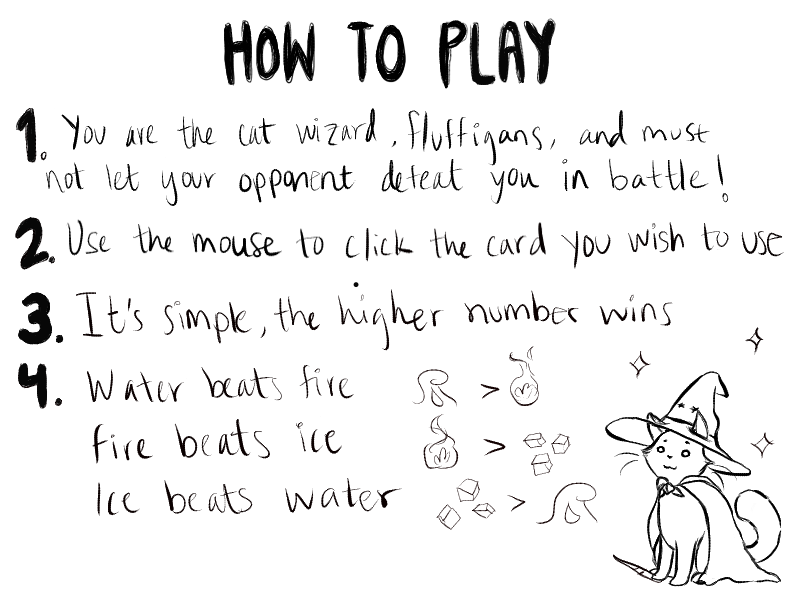 HOW TO PLAY
1. You are the cat wizard, fluffigans, and must
not let your opponent defeat you in battle!
2. Use the mouse to click the card you wish to use
3. It's simple, the higher number wins
4. Water beats fire >
fire beats ice >
Ice beats water >